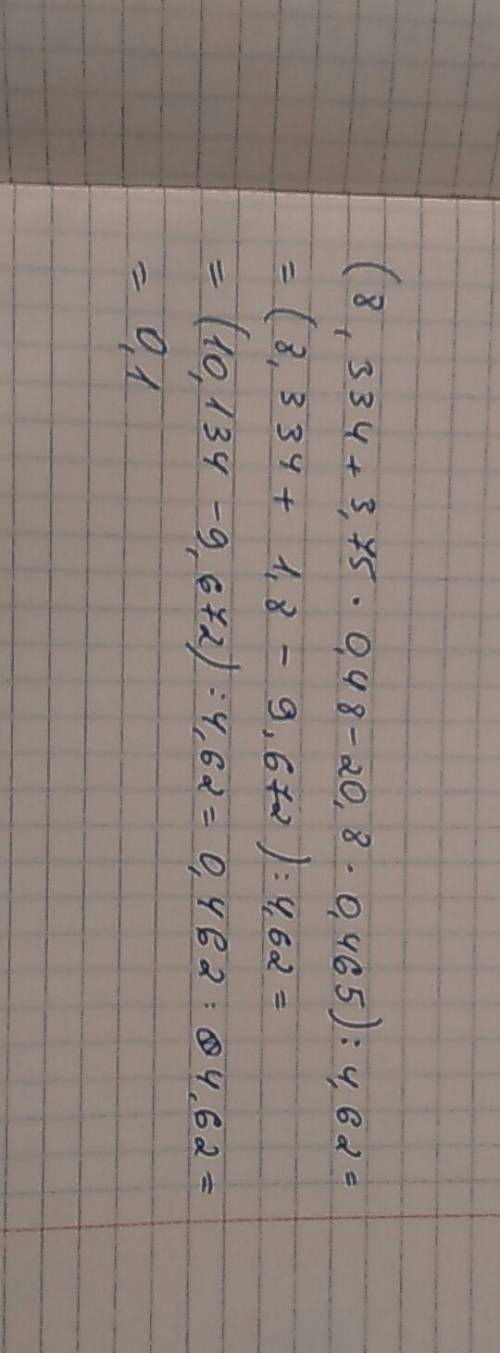 (8,334+3,75·0,48-20,8·0,465):4,62=
=(8,334+1,8-9,672):4,62=
=(10,134-9,672):4,62=0,462:4,62=
=0,1